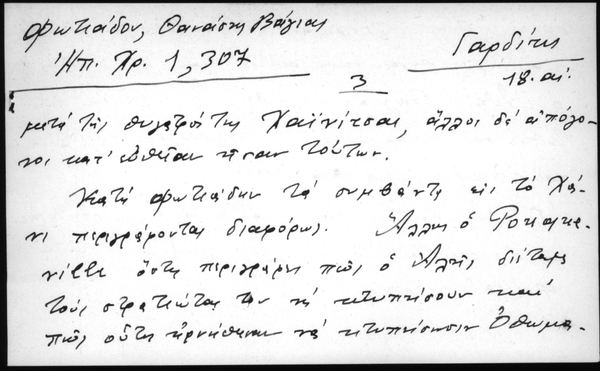 Φωτιάδου, Θανάσης Βάγιας
Ἠπ. Χρ. 1, 307
Γαρδίτης
18. αἰ.
3
μετὰ τῆς θυγατρός της Χαϊνίτσας, ἄλλοι δὲ ἀπόγο-
νοι κατ' εὐθεῖαν ἦσαν τούτων.
Κατὰ Φωτιάδην τὰ συμβάντα εἰς τὸ Χά-
νι περιγράφονται διαφόρως. Ἄλλως ὁ Pouque-
ville ὅστις περιγράφει πῶς ὁ Ἀλῆς διέταξε
τοὺς στρατιώτας του νὰ κτυπήσουν καὶ
πῶς οὗτοι ἠρνήθησαν νὰ κτυπήσωσιν Ὀθωμα-